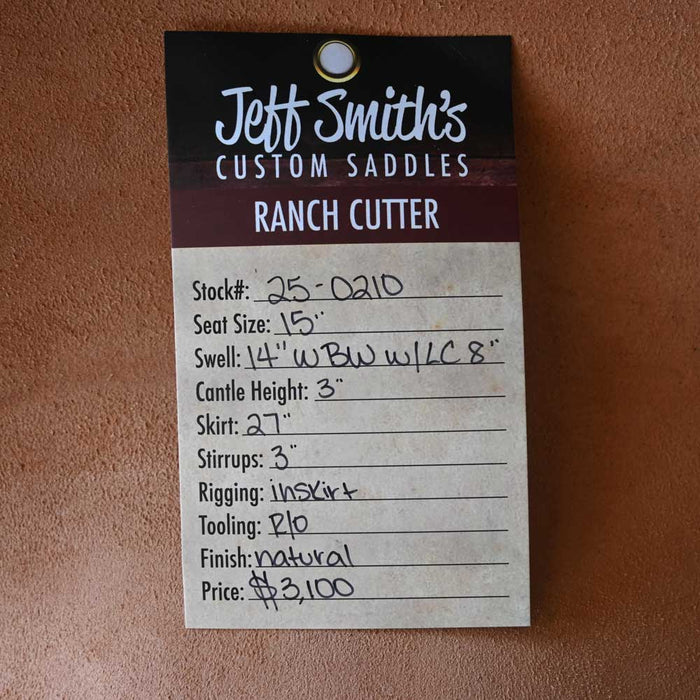 Jeff Smith's
CUSTOM SADDLES
RANCH CUTTER
Stock#: 25-0210
Seat Size: 15"
Swell: 14" W BW W/LC 8"
Cantle Height: 3"
Skirt: 27"
Stirrups: 3"
Rigging: inskirt
Tooling: R/O
Finish: natural
Price: $3,100